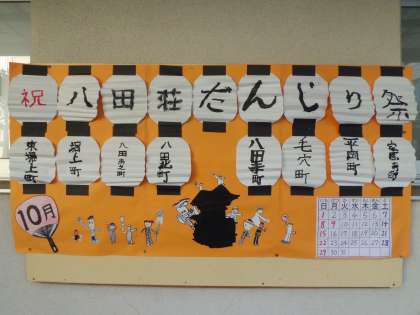 祝八田荘だんじり祭
東堀上町
堀上町
八田南之町
八田北町
八田寺町
毛穴町
平岡町
家原寺町
10月
日 月 火 水 木 金 土
1 2 3 4 5 6 7
8 9 10 11 12 13 14
15 16 17 18 19 20 21
22 23 24 25 26 27 28
29 30 31